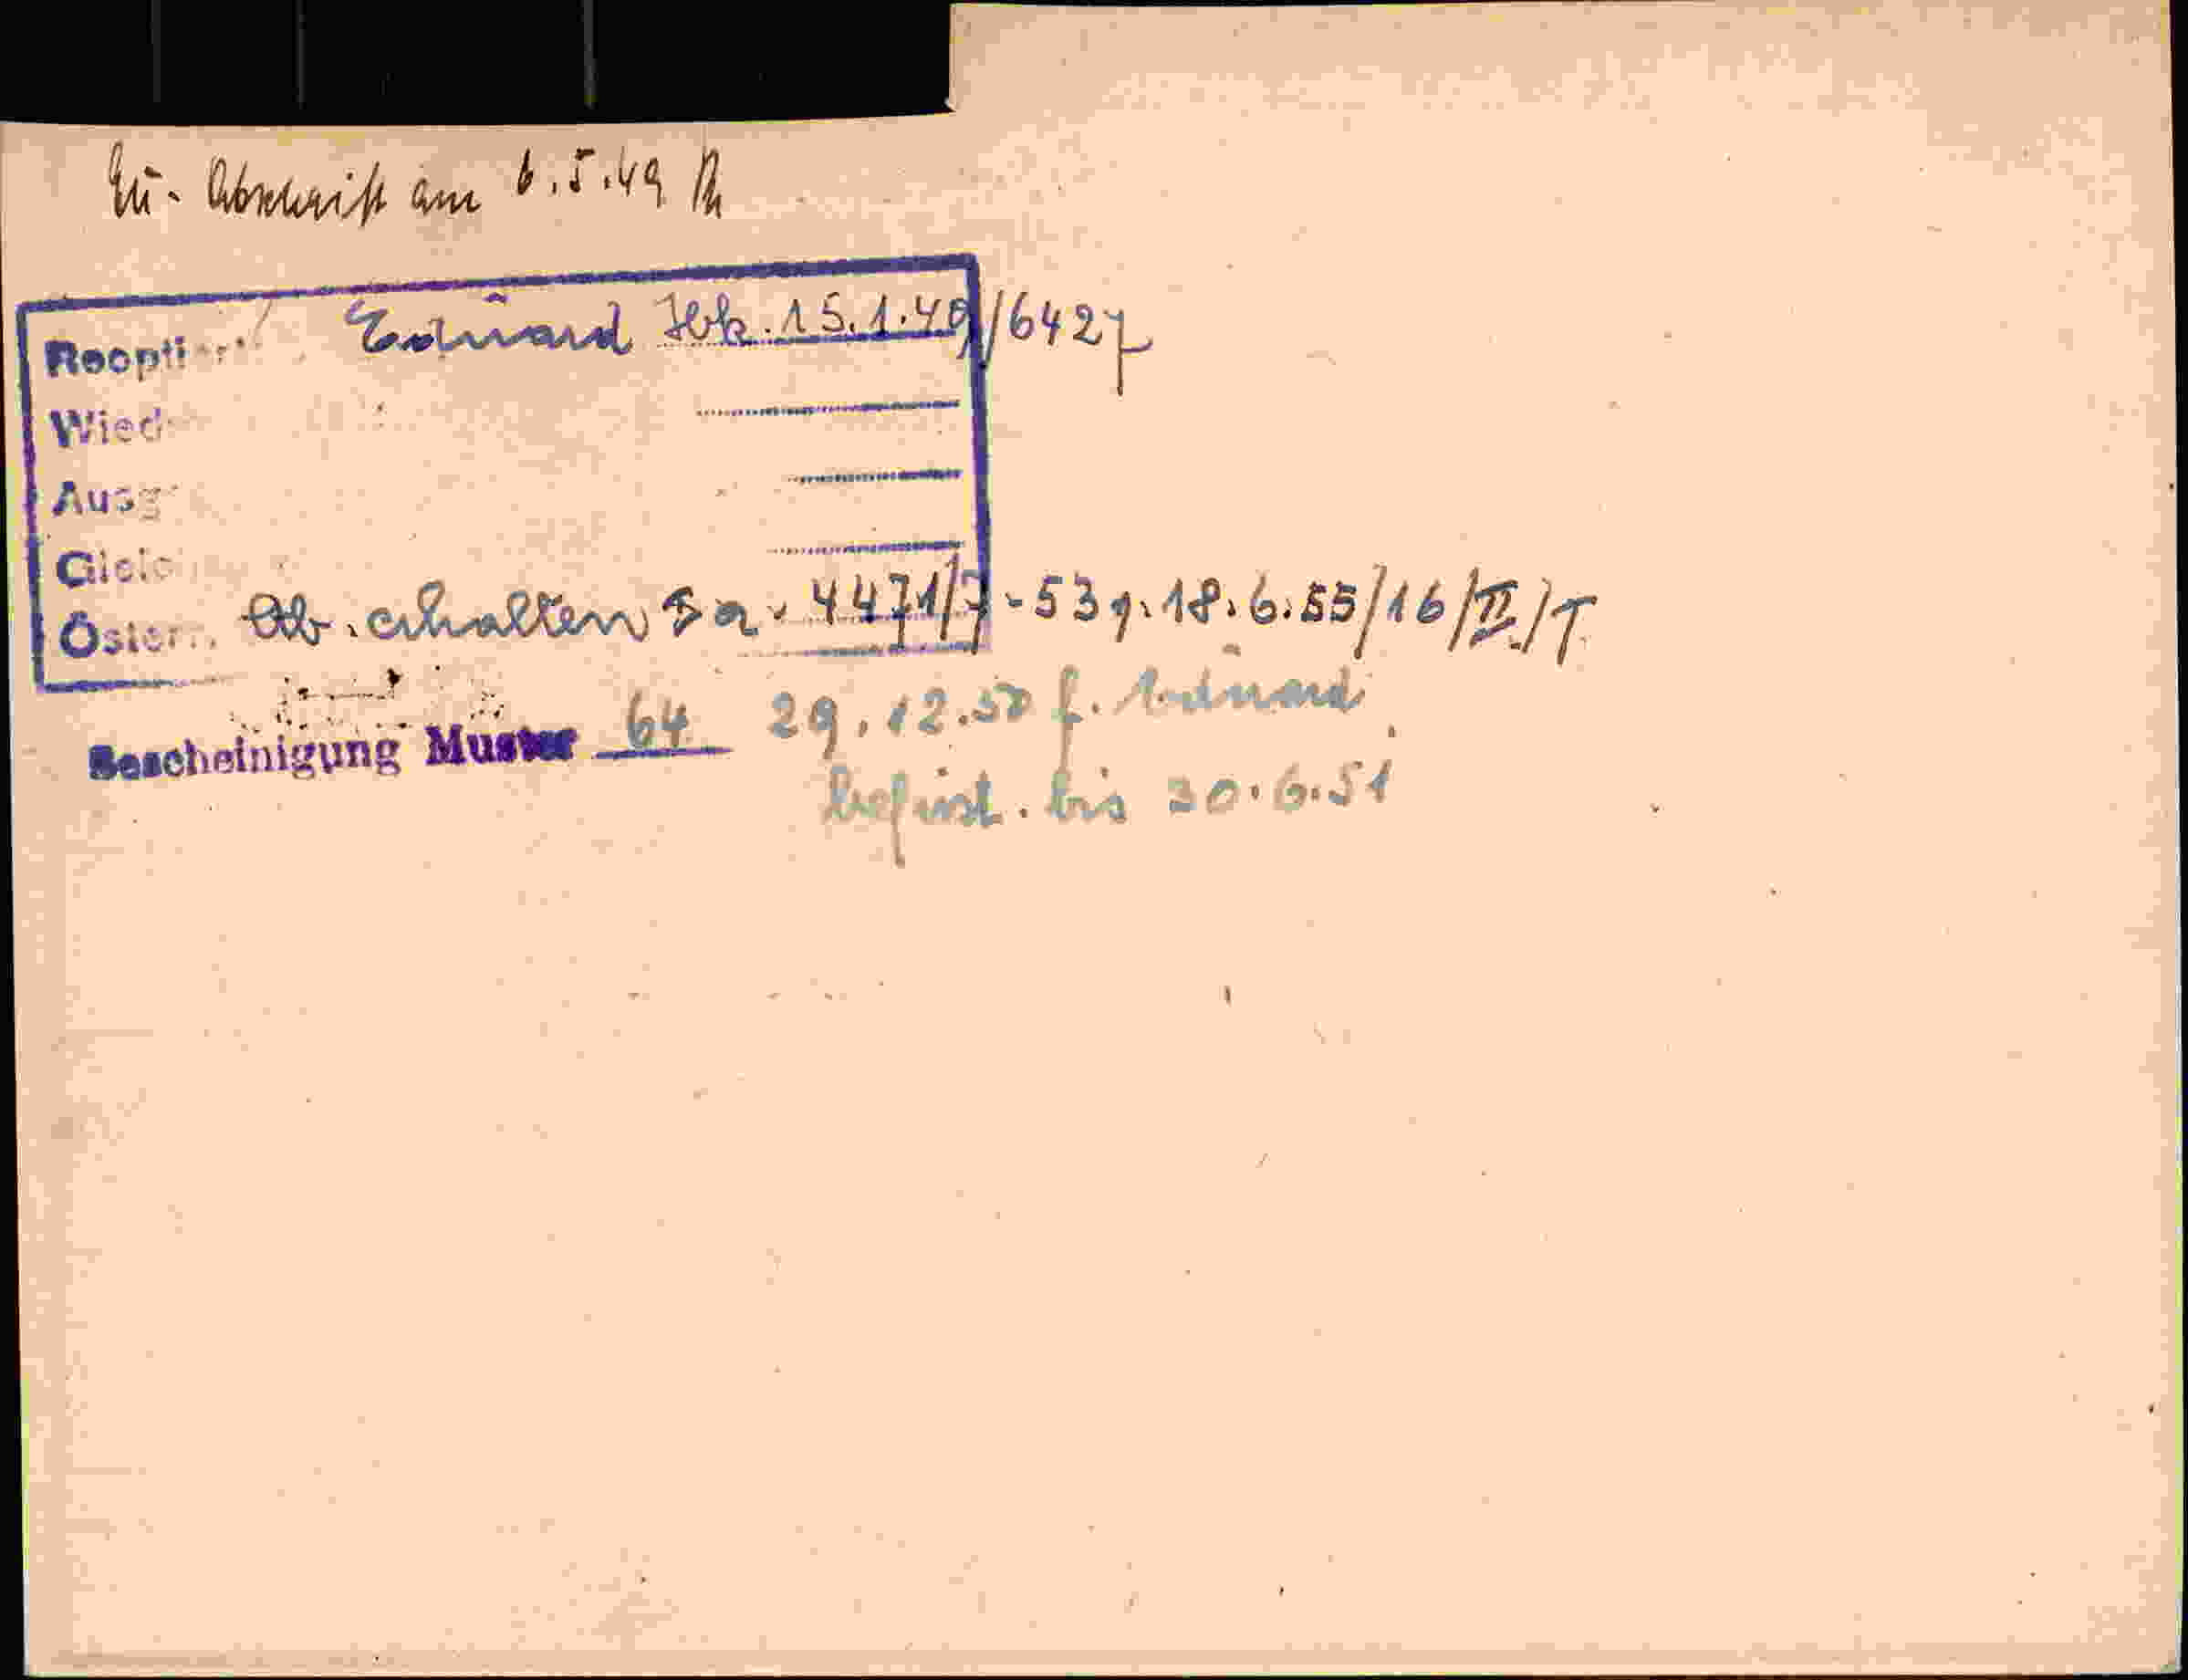 Abschrift am 6.5.49
Reopti
Eduard Hbk. 15.1.49/6427
Wied
Ausg
Gleic
Österr. Ab. erhalten Ia. 4471/7-53 v. 18.6.55/16/II./T.
Bescheinigung Muster 64 29.12.50 f. Eduard
befrist. bis 30.6.51